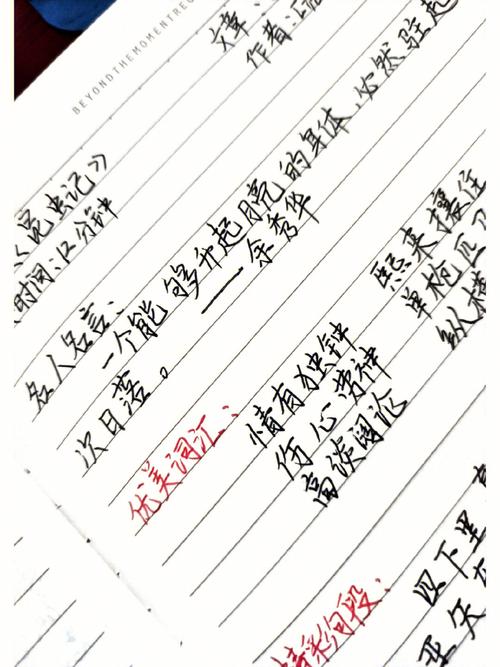 BEYONDTHEMOMENTREC
文章:
作者:
《昆虫记》
时间:12分钟
名人名言:
一个能够升起月亮的身体,必然驮起
次日落。
——余秀华
优美词汇:
情有独钟 熙来攘往
伤心劳神 单枪匹
高谈阔论 纵横
精彩句段:
四下里